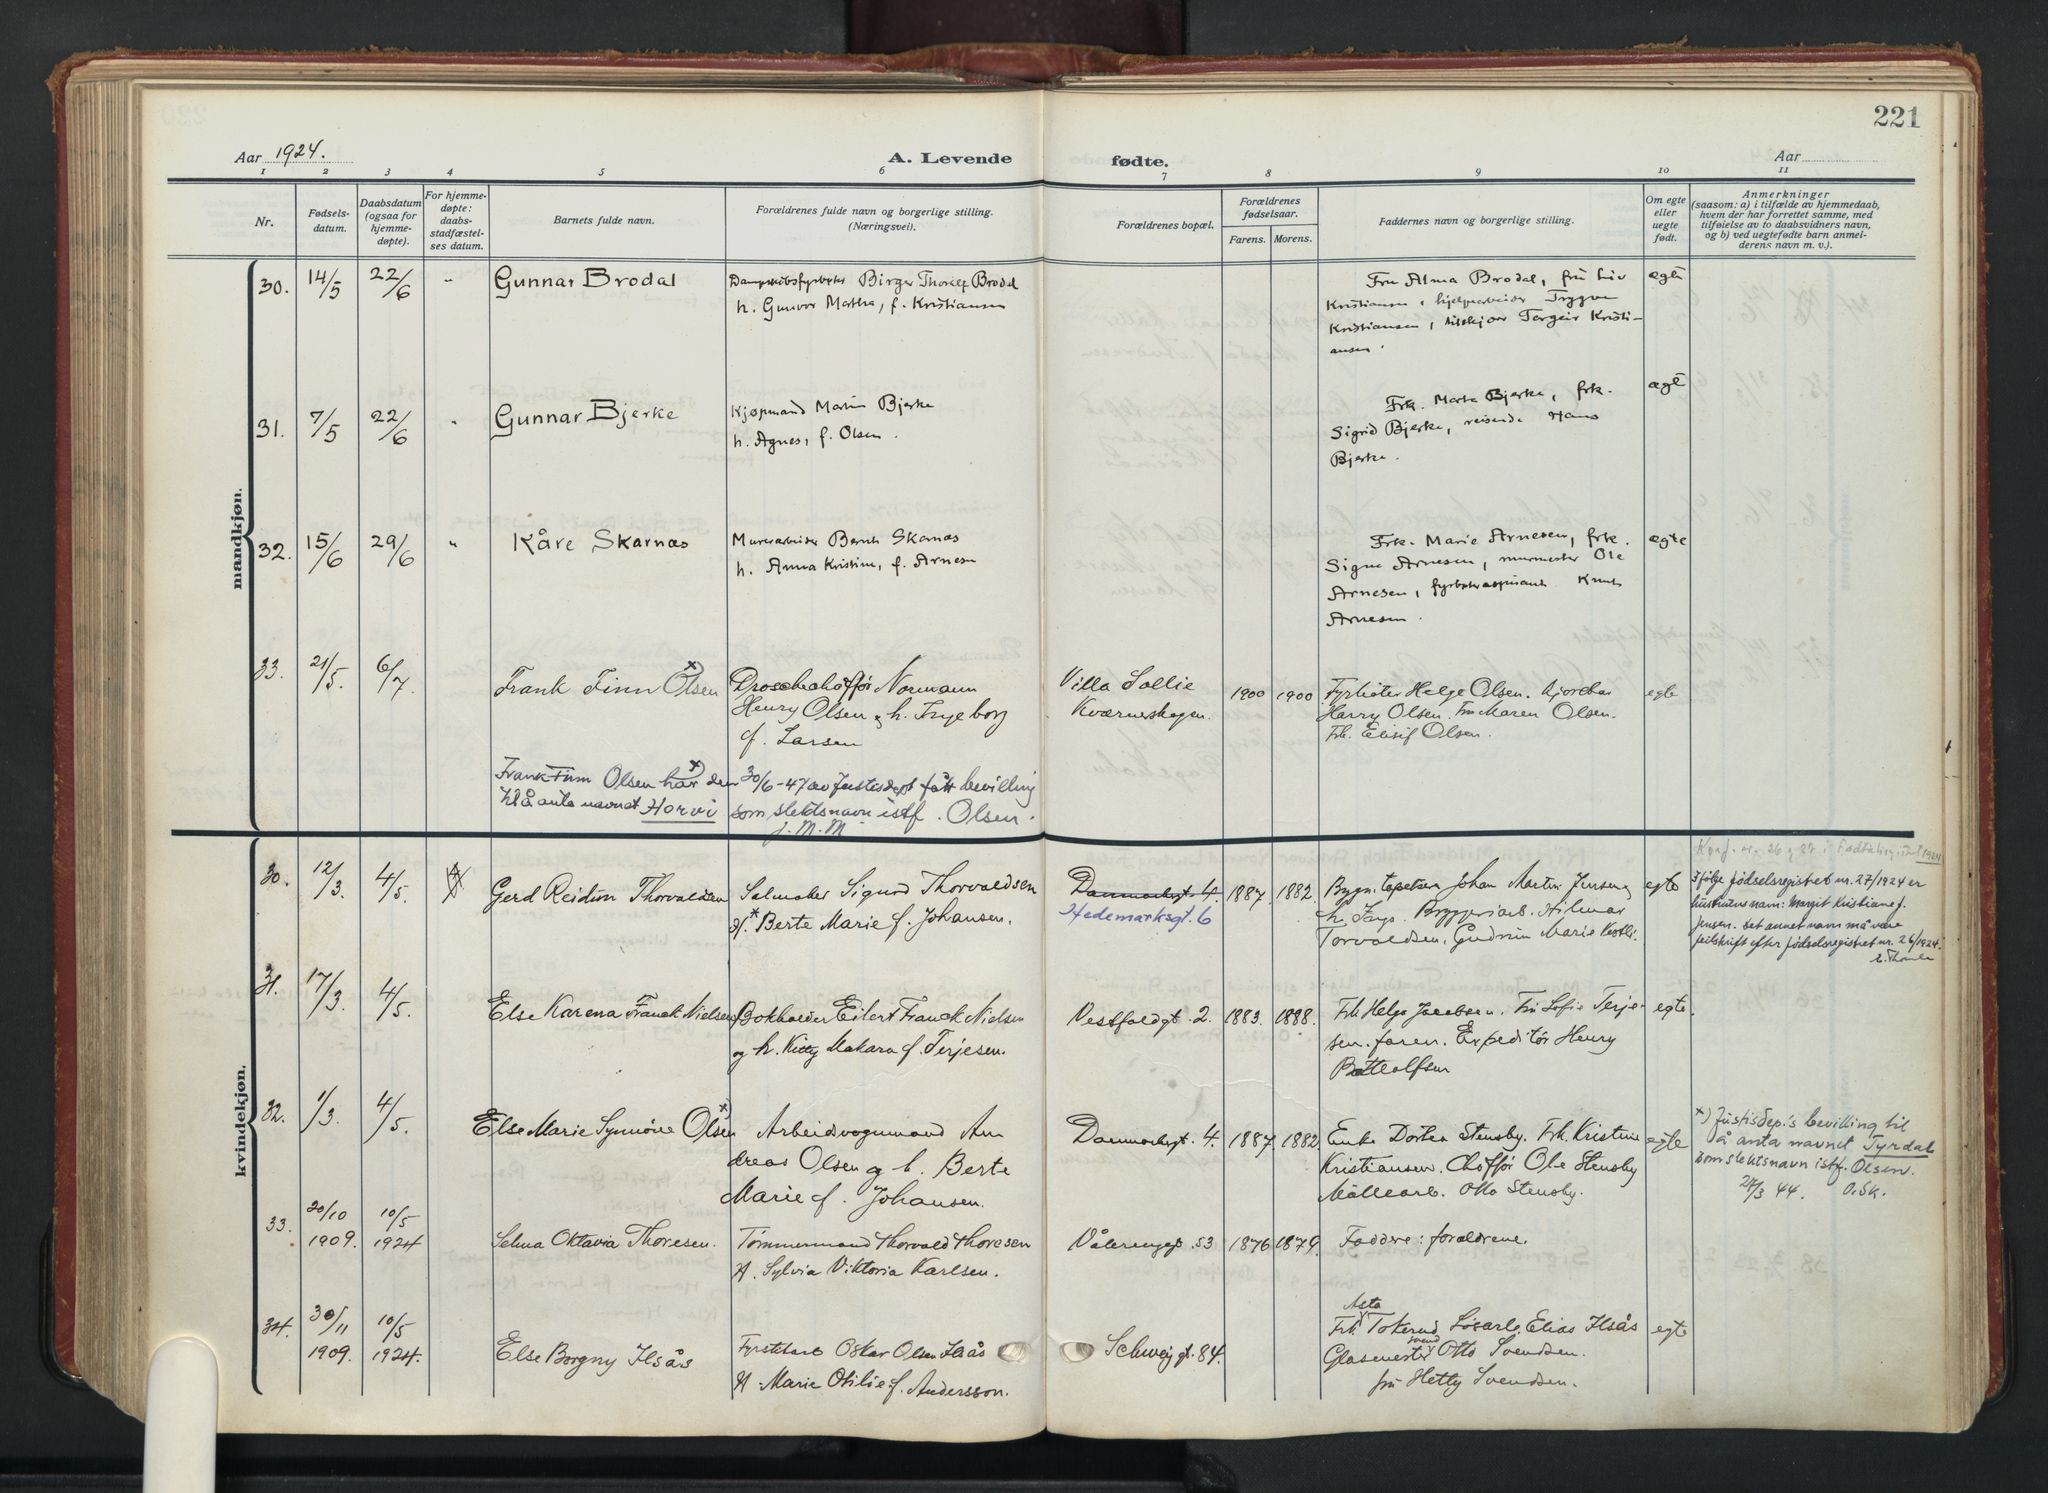 221
Aar 1924.
A. Levende fødte.
Aar
1 2 3 4 5 6 7 8 9 10 11
Nr.
Fødsels-
datum.
Daabsdatum
(ogsaa for
hjemme-
døpte).
For hjemme-
døpte:
daabs-
stadfæstel-
ses datum.
Barnets fulde navn.
Forældrenes fulde navn og borgerlige stilling.
(Næringsvei).
Forældrenes bopæl.
Forældrenes
fødselsaar.
Farens. Morens.
Faddernes navn og borgerlige stilling.
Om egte
eller
uegte
født.
Anmerkninger
(saasom: a) i tilfælde av hjemmedaab,
hvem der har forrettet samme, med
tilføielse av to daabsvidners navn,
og b) ved uegtefødte barn anmel-
derens navn m. v.).
mandkjøn.
30. 14/5 22/6 " Gunnar Brodal
Birger Thorleif Brodal
h. Gunvor Martha, f. Kristiansen
Fru Alma Brodal, fru Liv
Kristiansen, hjelpearbeider Trygve
Kristiansen, Torgeir Kristi-
ansen.
egte
31. 7/5 22/6 " Gunnar Bjerke
Kjøpmand Martin Bjerke
h. Agnes, f. Olsen.
Frk. Marta Bjerke, frk.
Sigrid Bjerke, reisende Hans
Bjerke.
egte
32. 15/6 29/6 " Kåre Skarnas
Murerarbeider Bernt Skarnas
h. Anna Kristine, f. Arnesen
Frk. Marie Arnesen, frk.
Signe Arnesen, murmester Ole
Arnesen, fyrbøteraspirant Knut
Arnesen.
egte
33. 21/5. 6/7 Frank Finn Olsen x)
Droschechöffør Normann
Henry Olsen og h. Ingeborg
f. Larsen
Villa Sollie
Kværnerskogen.
1900 1900
Fyrbøter Helge Olsen. Hjordbar
Harry Olsen. Fru Maren Olsen.
Frk. Elisif Olsen.
egte
x)
Frank Finn Olsen har den 30/6-47 av Justisdept fått bevilling
til å anta navnet Horvi som slektsnavn istf. Olsen.
J. M. M.
kvindekjøn.
30. 12/3. 4/5. Gerd Reidun Thorvaldsen
Salmaker Sigurd Thorvaldsen
H. x Berte Marie f. Johansen.
Danmarksgt. 4.
Hedemarksgt. 6
1887. 1882.
Bygn. tapetserer Johan Martin Jensen og
h. Inga. Bryggeriarb. Hilmar
Torvaldsen. Gudrun Marie
egte
Konf. nr. 26 og 27 i Fødselsregistret 1924
Ifølge fødselsregistret nr. 27/1924 er
hustruens navn: Margit Kristiane f.
Jensen. Det annet navn må være
feilskrift efter fødselsregistret nr. 26/1924.
31. 17/3. 4/5. Else Karena Franck Nielsen
Bokholder Eilert Franck Nielsen
og h. Kitty Makara f. Terjesen.
Vestfoldgt. 2.
1883. 1888.
Frk Helga Jacobsen. Fru Sofie Terje-
sen. faren. Expeditør Henry
Bottolfsen
egte
32. 1/3. 4/5. Else Marie Synnöve Olsen x)
Arbeidsvognmand An
dreas Olsen og h. Berte
Marie f. Johansen.
Danmarksgt. 4.
1887. 1882.
Enke Dortea Stensby. Frk. Kristine
Kristiansen. Chöffør Ole Stensby
Möllearb. Otto Stensby.
egte
x) Justisdep.'s bevilling til
å anta navnet Tyrdal
som slektsnavn istf. Olsen.
/3 44. O. Sk.
33. 20/10 1909. 10/5 1924 Selma Oktavia Thoresen.
Tømmermand Thorvald Thoresen
H. Sylvia Viktoria Karlsen.
Vålerenggt. 53
1876 1879.
Faddere: foreldrene.
34. 30/11 1909. 10/5 1924. Else Borgny Ilsås
Oskar Olsen Ilsås
H. Marie Otilie f. Andersson.
Schweig gt. 84.
Asta
Frk. Tokerud. Elias Ilsås
Glasmester Otto Svendsen.
fru Hetty Svendsen.
egte